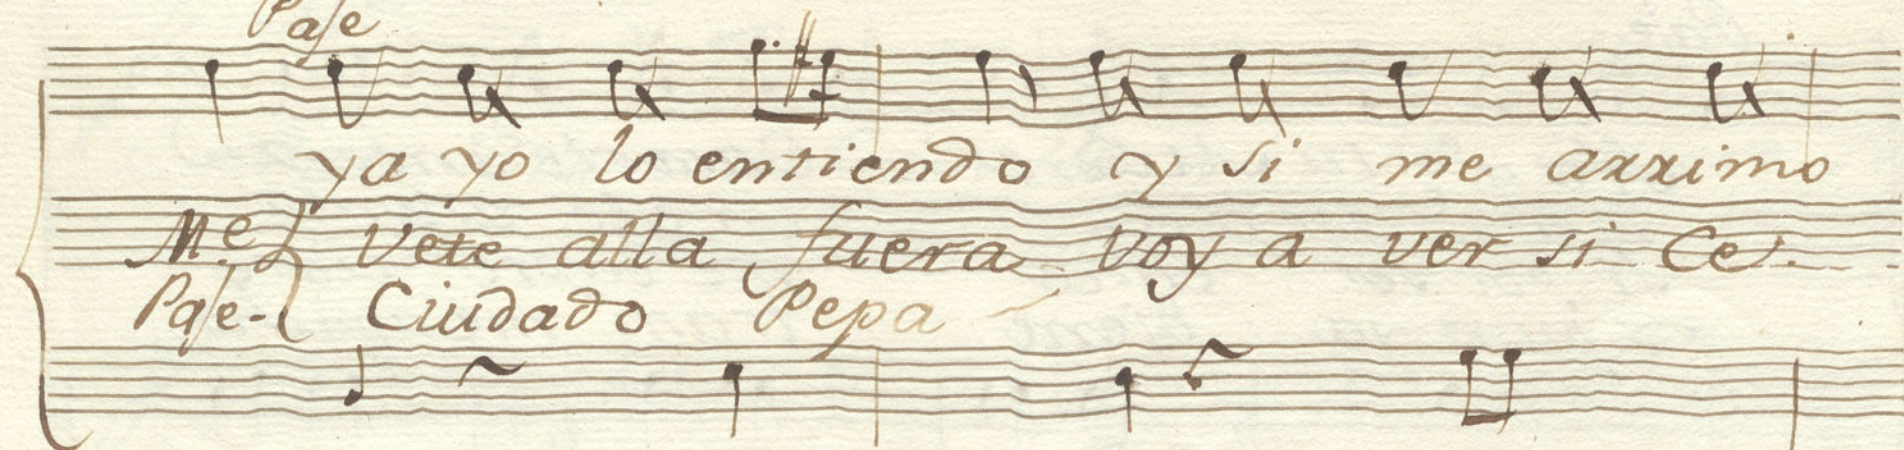 Paje
ya yo lo entiendo y si me arrimo
M.e Vete alla fuera voy a ver si Ce.
Paje - Ciudado Pepa